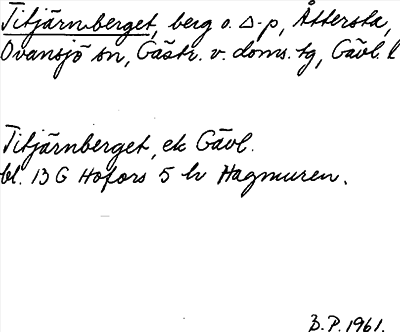 Titjärnberget, berg o. Δ-p, Åttersta,
Ovansjö sn, Gästr. v. doms. tg, Gävl. l
Titjärnberget, ek Gävl.
bl. 13 G Hofors 5 h Hagmuren.
B.P. 1961.